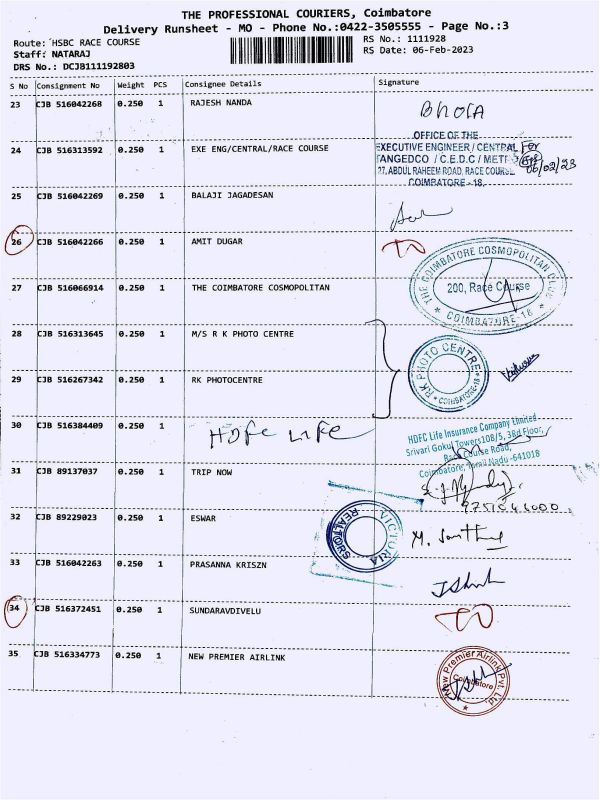 THE PROFESSIONAL COURIERS, Coimbatore
Delivery Runsheet - MO - Phone No.:0422-3505555 - Page No.:3
Route: HSBC RACE COURSE
RS No.: 1111928
Staff: NATARAJ
RS Date: 06-Feb-2023
DRS No.: DCJB111192803
S No Consignment No Weight PCS Consignee Details Signature
23 CJB 516042268 0.250 1 RAJESH NANDA
24 CJB 516313592 0.250 1 EXE ENG/CENTRAL/RACE COURSE
OFFICE OF THE
EXECUTIVE ENGINEER / CENTRAL For
TANGEDCO / C.E.D.C / METRO
27, ABDUL RAHEEM ROAD, RACE COURSE,
COIMBATORE - 18.
06/02/23
25 CJB 516042269 0.250 1 BALAJI JAGADESAN
26 CJB 516042266 0.250 1 AMIT DUGAR
27 CJB 516066914 0.250 1 THE COIMBATORE COSMOPOLITAN
THE COIMBATORE COSMOPOLITAN CLUB
200, Race Course
COIMBATORE-18
28 CJB 516313645 0.250 1 M/S R K PHOTO CENTRE
RK PHOTO CENTRE
COIMBATORE-18
29 CJB 516267342 0.250 1 RK PHOTOCENTRE
30 CJB 516384409 0.250 1 HDFC LIFE
HDFC Life Insurance Company Limited
Srivari Gokul Towers108/5, 3Rd Floor,
Race Course Road,
Coimbatore, Tamil Nadu -641018
31 CJB 89137037 0.250 1 TRIP NOW
32 CJB 89229023 0.250 1 ESWAR
VICTORIA
REALTORS
33 CJB 516042263 0.250 1 PRASANNA KRISZN
34 CJB 516372451 0.250 1 SUNDARAVDIVELU
35 CJB 516334773 0.250 1 NEW PREMIER AIRLINK
New Premier Airlink Pvt. Ltd.
Coimbatore